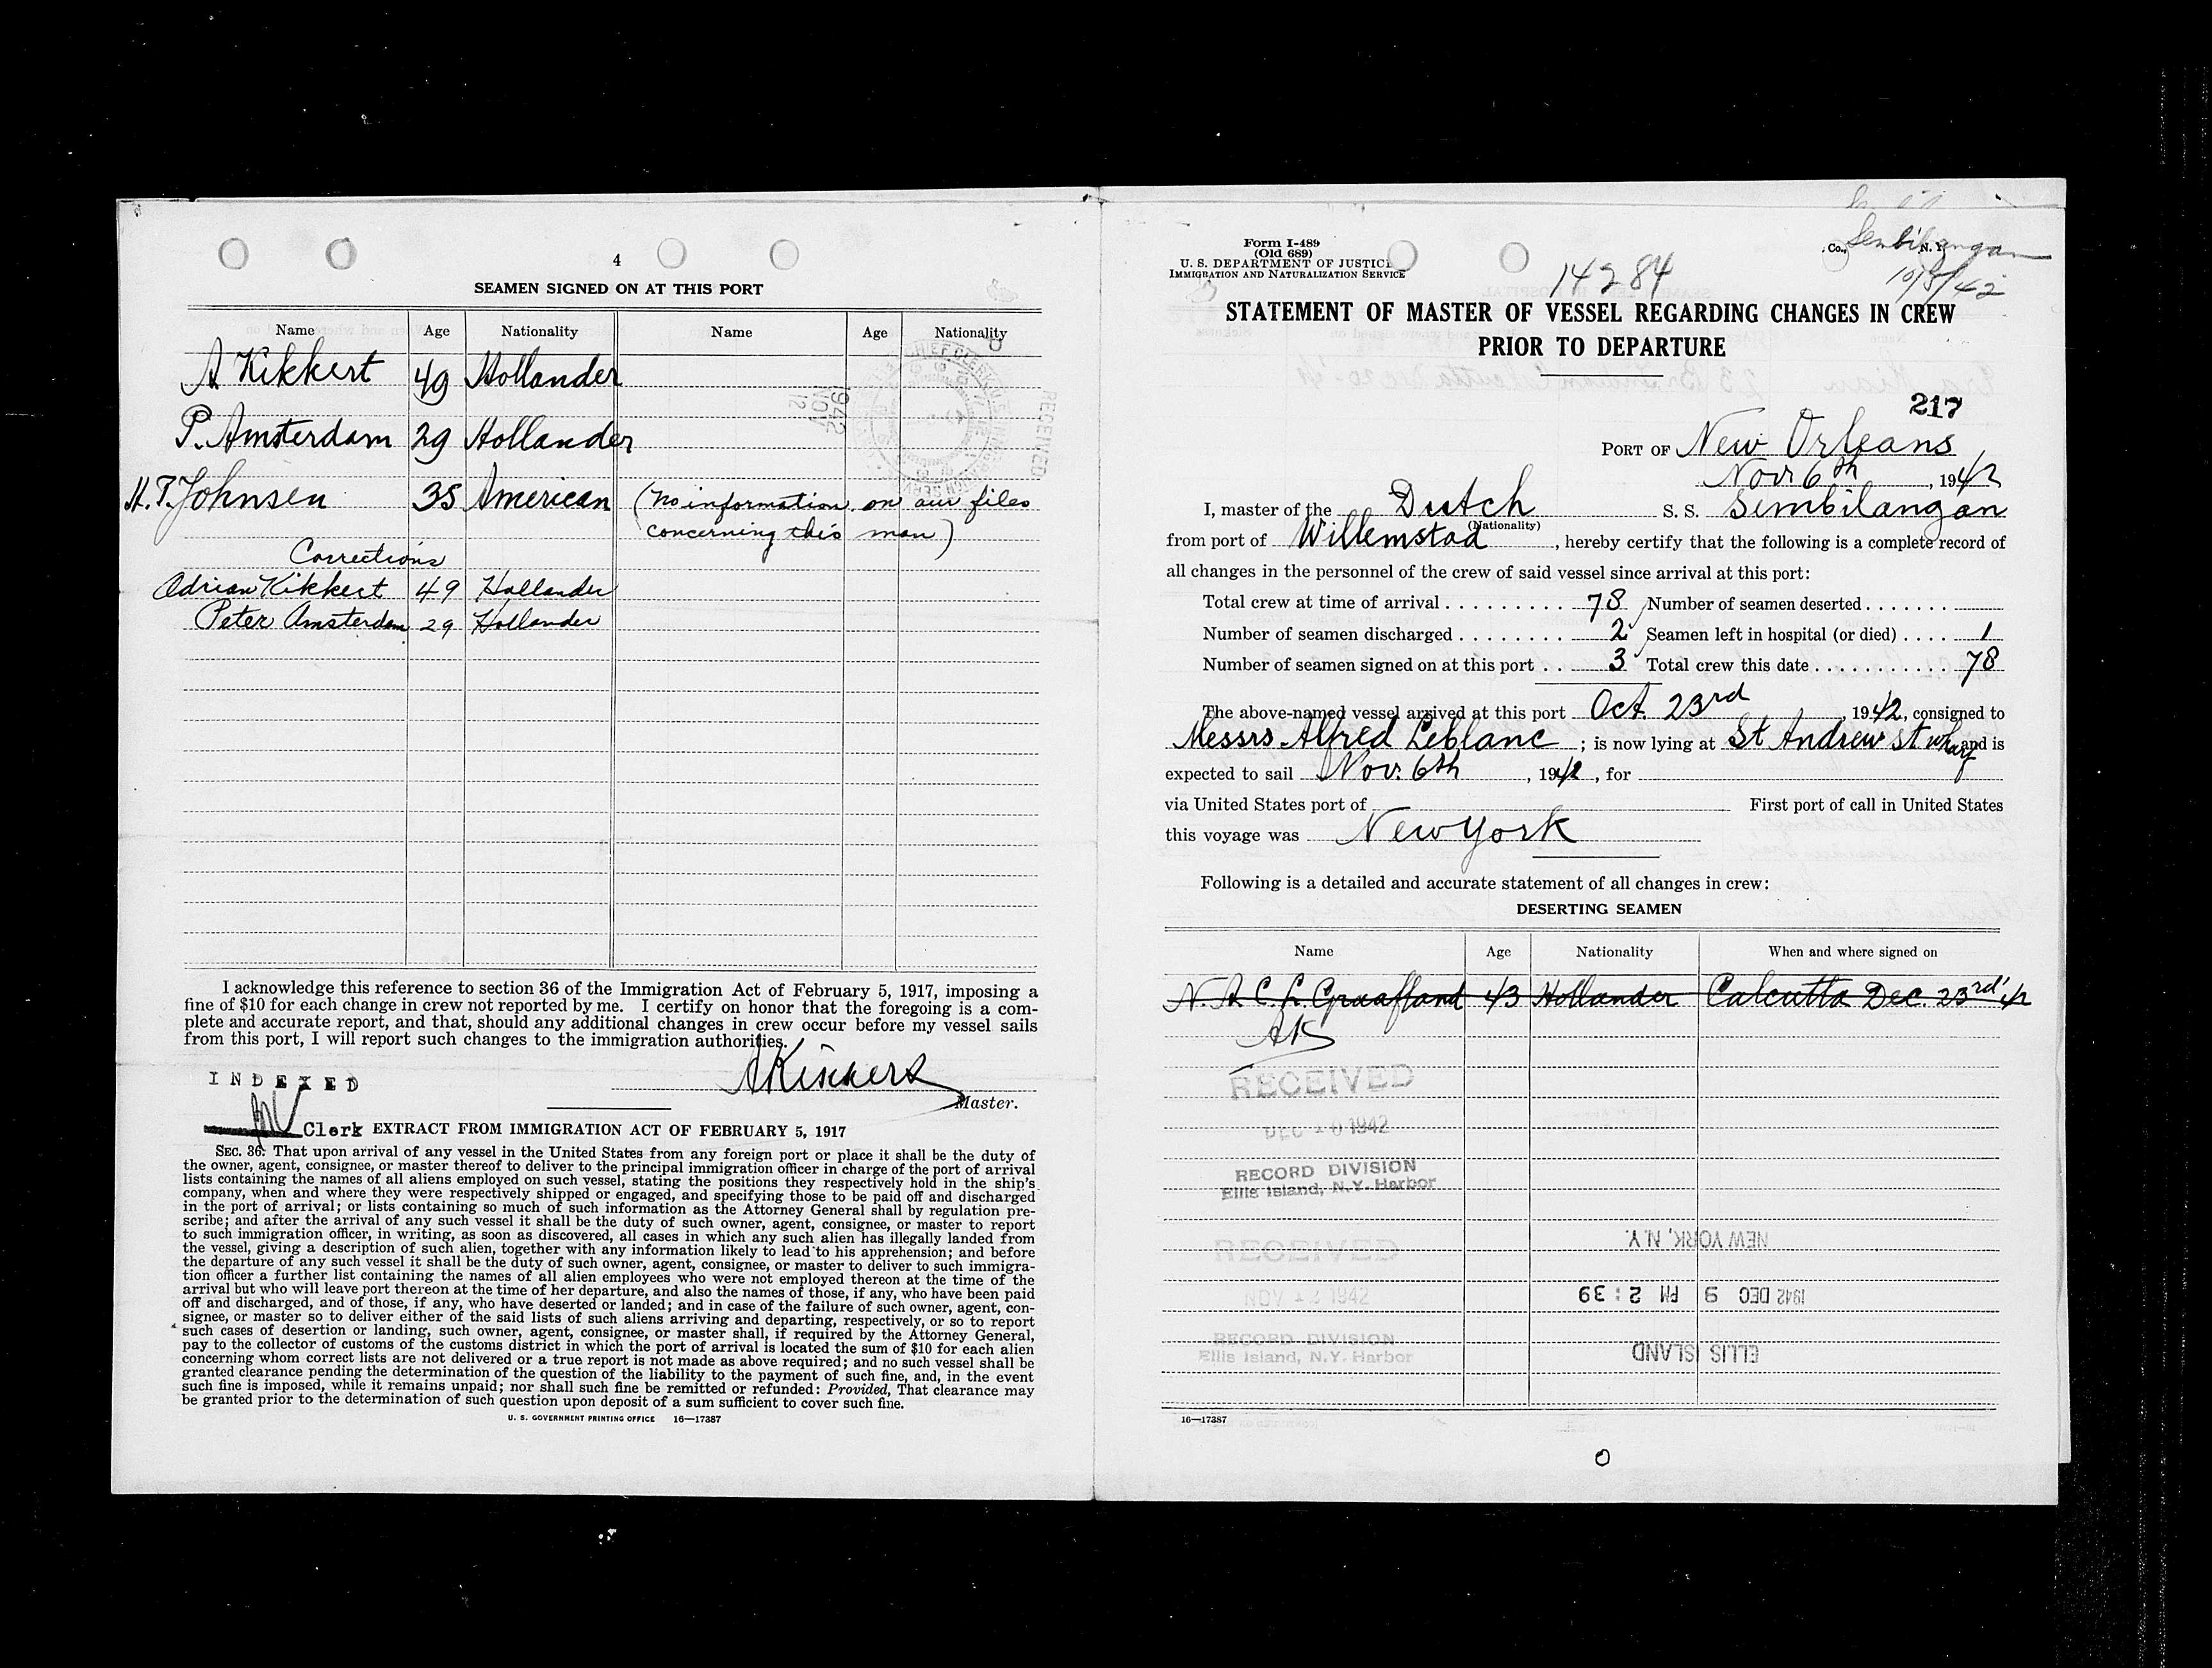 4
SEAMEN SIGNED ON AT THIS PORT
Name Age Nationality Name Age Nationality
A Kikkert 49 Hollander
P. Amsterdam 29 Hollander
H. T. Johnsen 35 American (No information on our files
concerning this man)
Corrections
Adrian Kikkert 49 Hollander
Peter Amsterdam 29 Hollander
1942
NOV
12
RECEIVED
I acknowledge this reference to section 36 of the Immigration Act of February 5, 1917, imposing a
fine of $10 for each change in crew not reported by me. I certify on honor that the foregoing is a com-
plete and accurate report, and that, should any additional changes in crew occur before my vessel sails
from this port, I will report such changes to the immigration authorities.
INDEXED
Master.
Clerk EXTRACT FROM IMMIGRATION ACT OF FEBRUARY 5, 1917
SEC. 36. That upon arrival of any vessel in the United States from any foreign port or place it shall be the duty of
the owner, agent, consignee, or master thereof to deliver to the principal immigration officer in charge of the port of arrival
lists containing the names of all aliens employed on such vessel, stating the positions they respectively hold in the ship's
company, when and where they were respectively shipped or engaged, and specifying those to be paid off and discharged
in the port of arrival; or lists containing so much of such information as the Attorney General shall by regulation pre-
scribe; and after the arrival of any such vessel it shall be the duty of such owner, agent, consignee, or master to report
to such immigration officer, in writing, as soon as discovered, all cases in which any such alien has illegally landed from
the vessel, giving a description of such alien, together with any information likely to lead to his apprehension; and before
the departure of any such vessel it shall be the duty of such owner, agent, consignee, or master to deliver to such immigra-
tion officer a further list containing the names of all alien employees who were not employed thereon at the time of the
arrival but who will leave port thereon at the time of her departure, and also the names of those, if any, who have been paid
off and discharged, and of those, if any, who have deserted or landed; and in case of the failure of such owner, agent, con-
signee, or master so to deliver either of the said lists of such aliens arriving and departing, respectively, or so to report
such cases of desertion or landing, such owner, agent, consignee, or master shall, if required by the Attorney General,
pay to the collector of customs of the customs district in which the port of arrival is located the sum of $10 for each alien
concerning whom correct lists are not delivered or a true report is not made as above required; and no such vessel shall be
granted clearance pending the determination of the question of the liability to the payment of such fine, and, in the event
such fine is imposed, while it remains unpaid; nor shall such fine be remitted or refunded: Provided, That clearance may
be granted prior to the determination of such question upon deposit of a sum sufficient to cover such fine.
U. S. GOVERNMENT PRINTING OFFICE 16—17387
Form I-489
(Old 689)
U. S. DEPARTMENT OF JUSTICE
IMMIGRATION AND NATURALIZATION SERVICE
Co., N. Y.
Sembilangan
14284
STATEMENT OF MASTER OF VESSEL REGARDING CHANGES IN CREW
PRIOR TO DEPARTURE
217
PORT OF New Orleans
Nov 6th, 1942
I, master of the Dutch S. S. Sembilangan
(Nationality)
from port of Willemstad, hereby certify that the following is a complete record of
all changes in the personnel of the crew of said vessel since arrival at this port:
Total crew at time of arrival 78 Number of seamen deserted
Number of seamen discharged 2 Seamen left in hospital (or died) 1
Number of seamen signed on at this port 3 Total crew this date 78
The above-named vessel arrived at this port Oct. 23rd, 1942, consigned to
Messrs Alfred Leblanc; is now lying at St Andrew St wharf and is
expected to sail Nov. 6th, 1942, for
via United States port of First port of call in United States
this voyage was New York
Following is a detailed and accurate statement of all changes in crew:
DESERTING SEAMEN
Name Age Nationality When and where signed on
N. A. C. L. Graafland 43 Hollander Calcutta Dec. 23rd '42
AK
RECEIVED
DEC 10 1942
RECORD DIVISION
Ellis Island, N.Y. Harbor
NEW YORK, N.Y.
RECEIVED
1942 DEC 9 PM 2:39
NOV 12 1942
RECORD DIVISION
Ellis Island, N.Y. Harbor
ELLIS ISLAND
16—17387